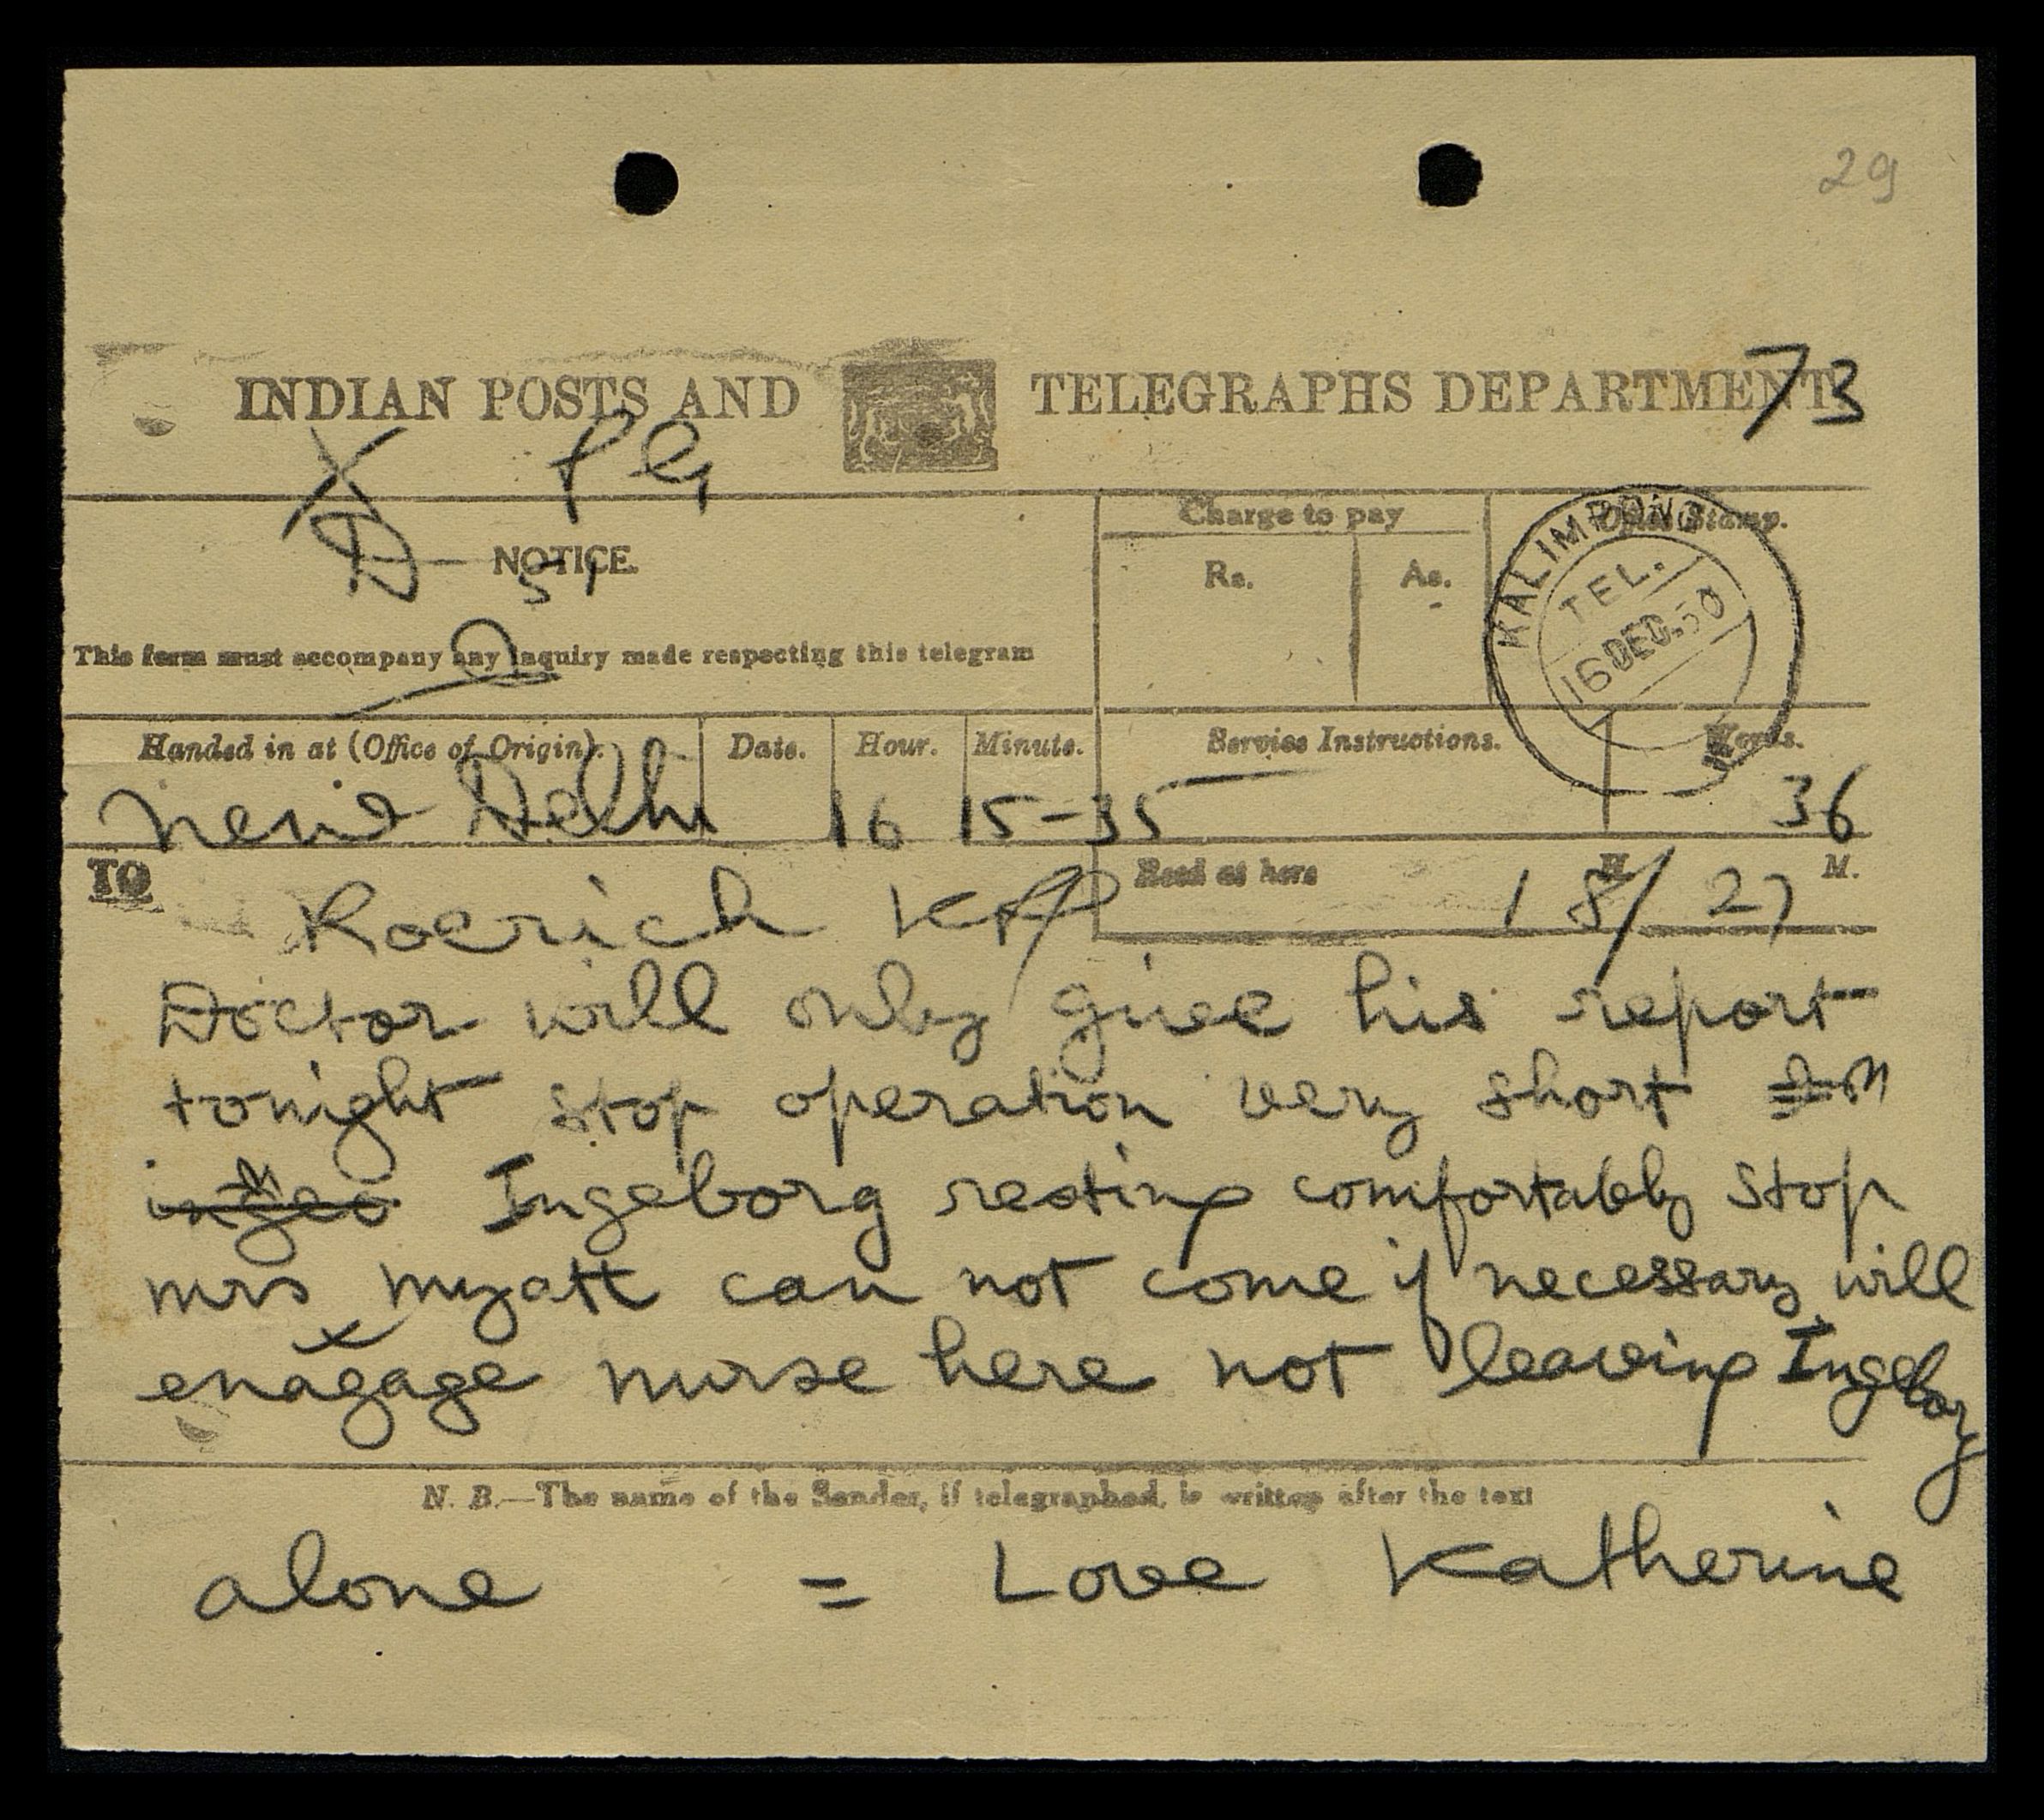 29
INDIAN POSTS AND TELEGRAPHS DEPARTMENT
73
X PG
D
51
NOTICE.
This form must accompany any inquiry made respecting this telegram
Charge to pay
Rs. As.
Office Stamp.
KALIMPONG
TEL.
16 DEC. 50
Handed in at (Office of Origin). Date. Hour. Minute. Service Instructions. Words.
New Delhi 16 15-35 36
TO
Roerich Kpg
Recd at here H. M.
18/27
Doctor will only give his report
tonight stop operation very short
Ingeborg resting comfortably stop
mrs myatt can not come if necessary will
enagage nurse here not leaving Ingeborg
N. B.—The name of the Sender, if telegraphed, is written after the text
alone = Love Katherine